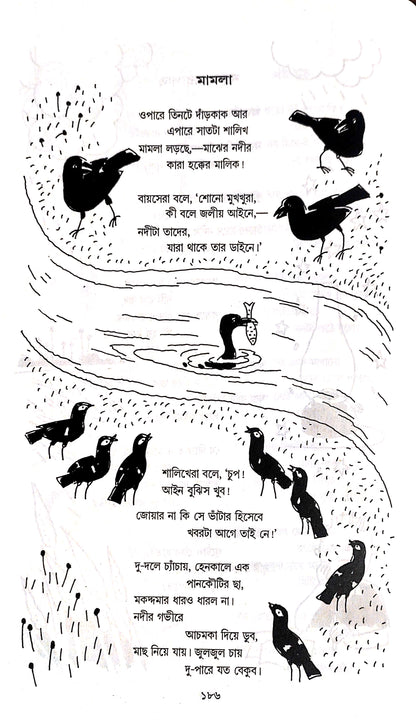 মামলা
ওপারে তিনটে দাঁড়কাক আর
এপারে সাতটা শালিখ
মামলা লড়ছে,—মাঝের নদীর
কারা হক্কের মালিক!
বায়সেরা বলে, ‘শোনো মুখখুরা,
কী বলে জলীয় আইনে,—
নদীটা তাদের,
যারা থাকে তার ডাইনে।’
শালিখেরা বলে, ‘চুপ!
আইন বুঝিস খুব!
জোয়ার না কি সে ভাঁটার হিসেবে
খবরটা আগে তাই নে।’
দু-দলে চ্যাঁচায়, হেনকালে এক
পানকৌটির ছা,
মকদ্দমার ধারও ধারল না।
নদীর গভীরে
আচমকা দিয়ে ডুব,
মাছ নিয়ে যায়। জুলজুল চায়
দু-পারে যত বেকুব।
১৮৬